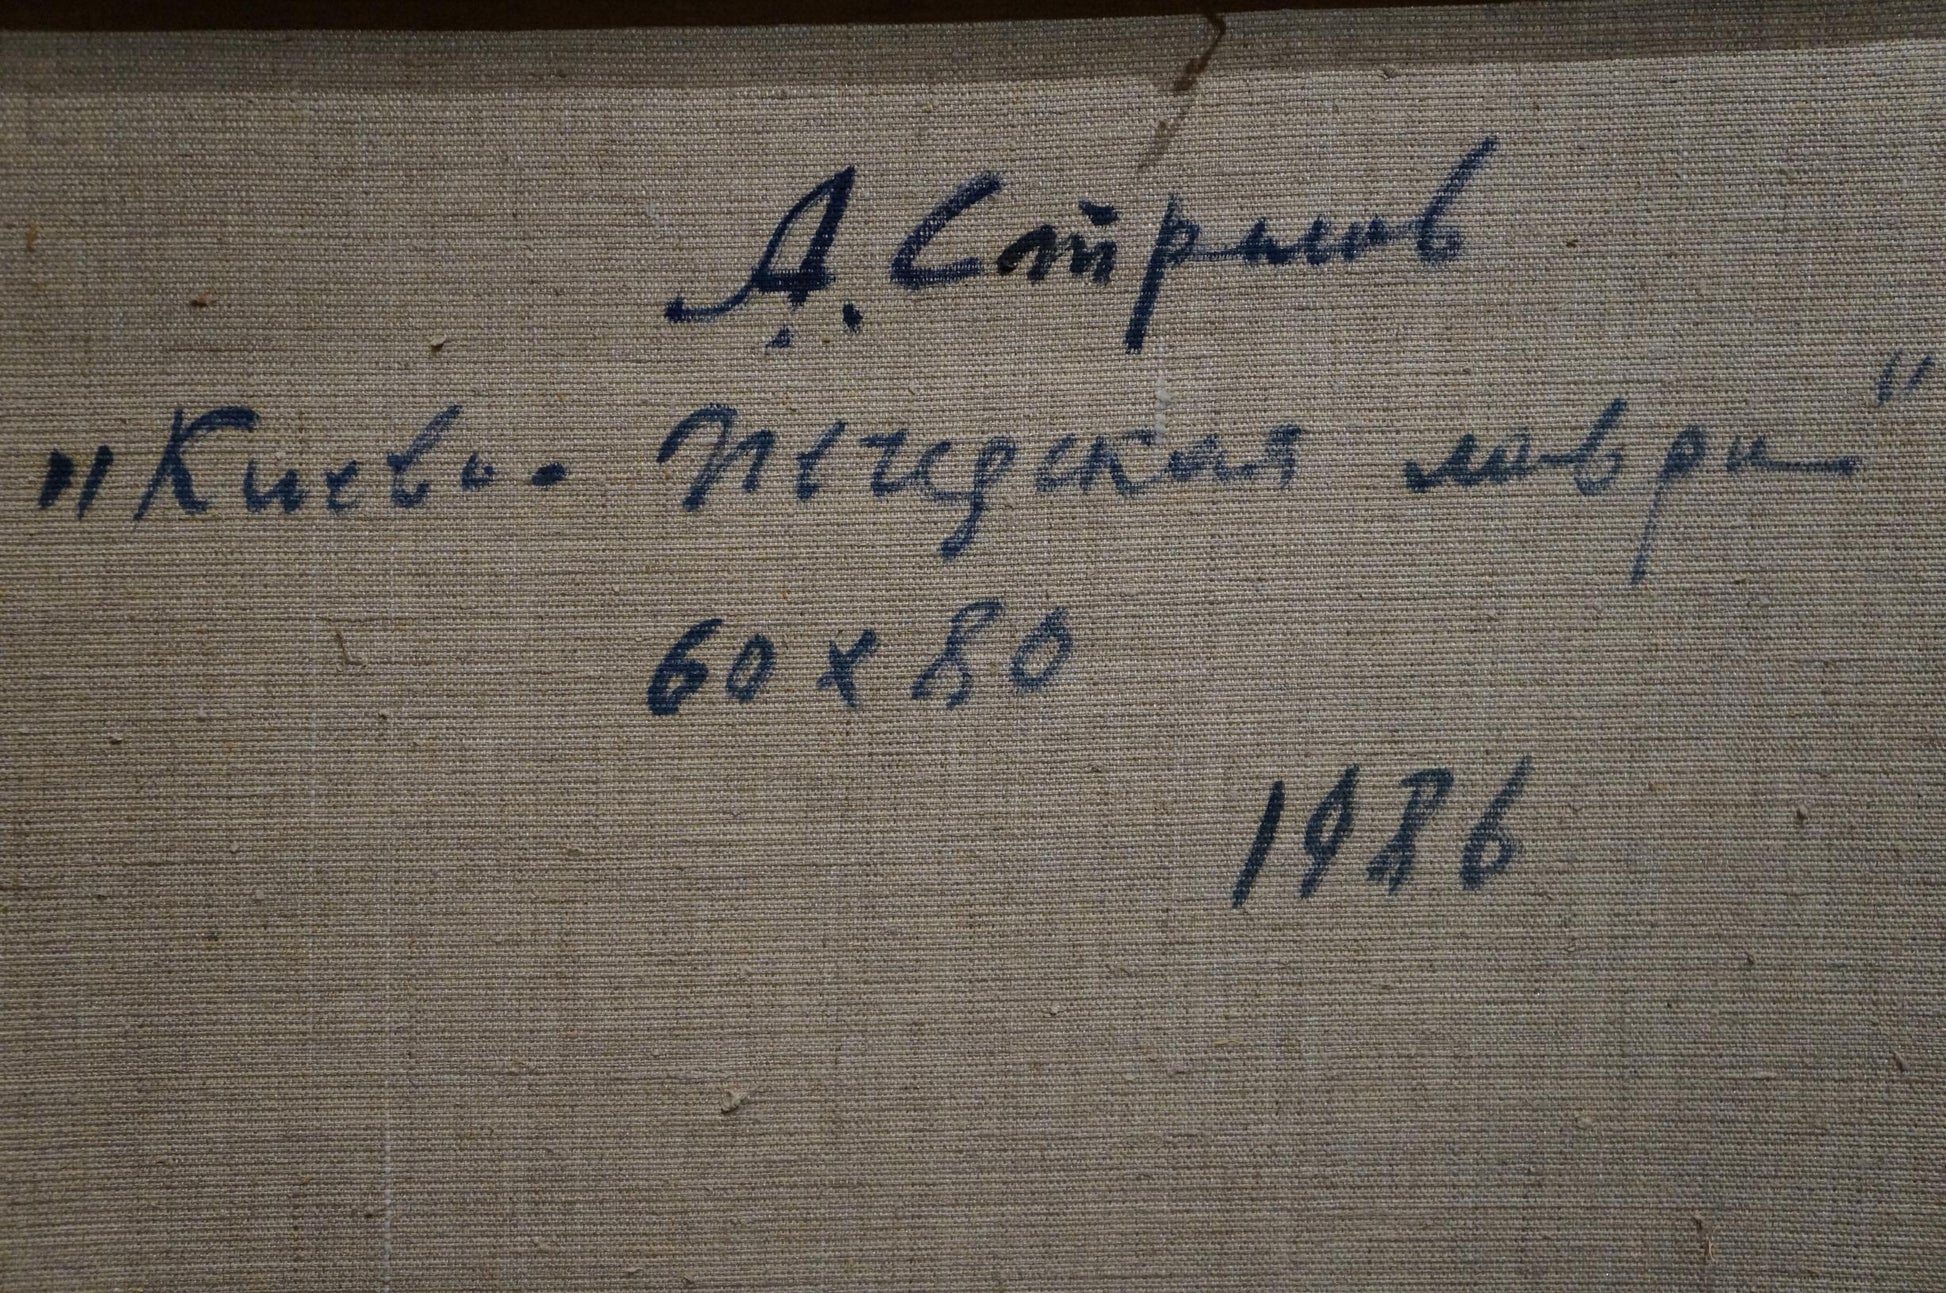 А. Стрилов
"Киево-Печерская лавра"
60 х 80
1986